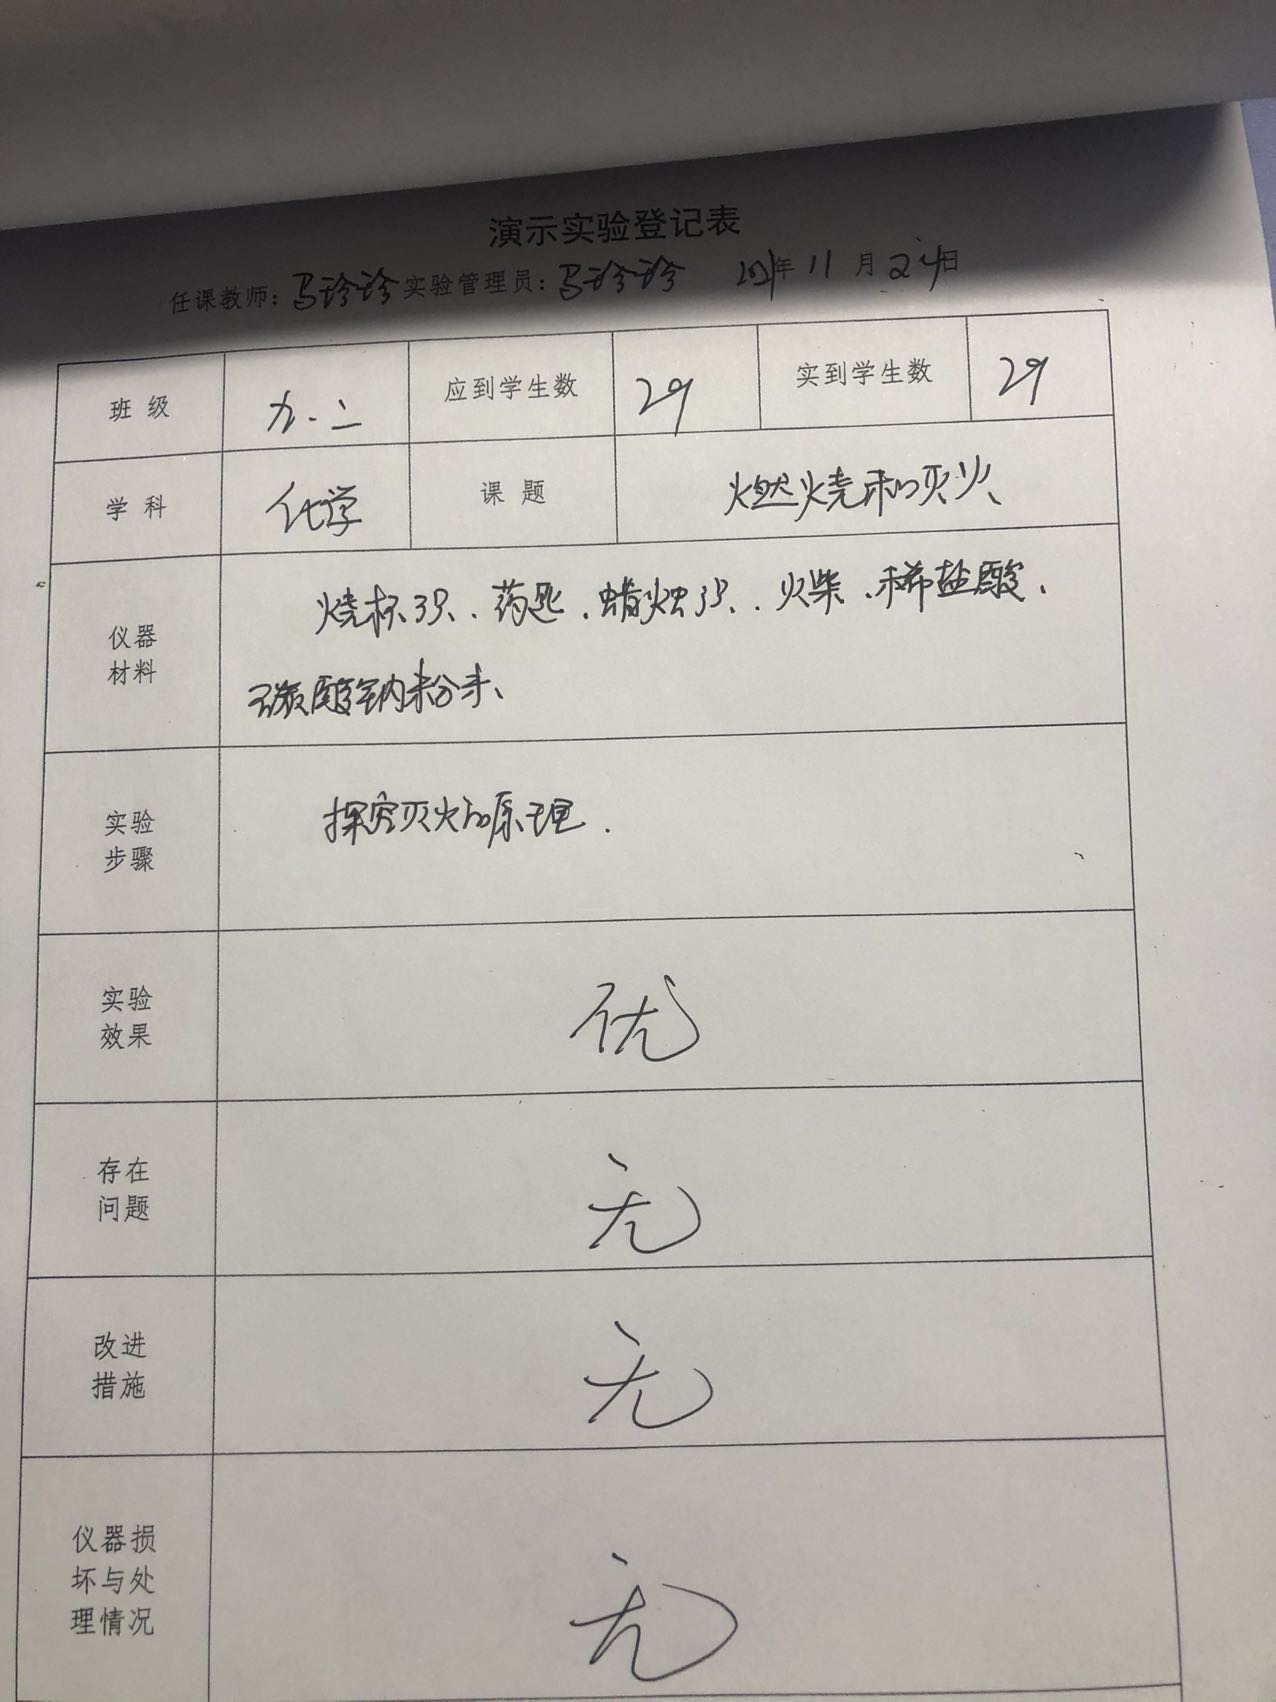 演示实验登记表
任课教师：马珍珍 实验管理员：马珍珍 2021年 11 月 24日
班 级 九.二 应到学生数 29 实到学生数 29
学 科 化学 课 题 燃烧和灭火
仪器
材料
烧杯3只、药匙、蜡烛3只、火柴、稀盐酸、
碳酸钠粉末、
实验
步骤
探究灭火的原理.
实验
效果
优
存在
问题
无
改进
措施
无
仪器损
坏与处
理情况
无